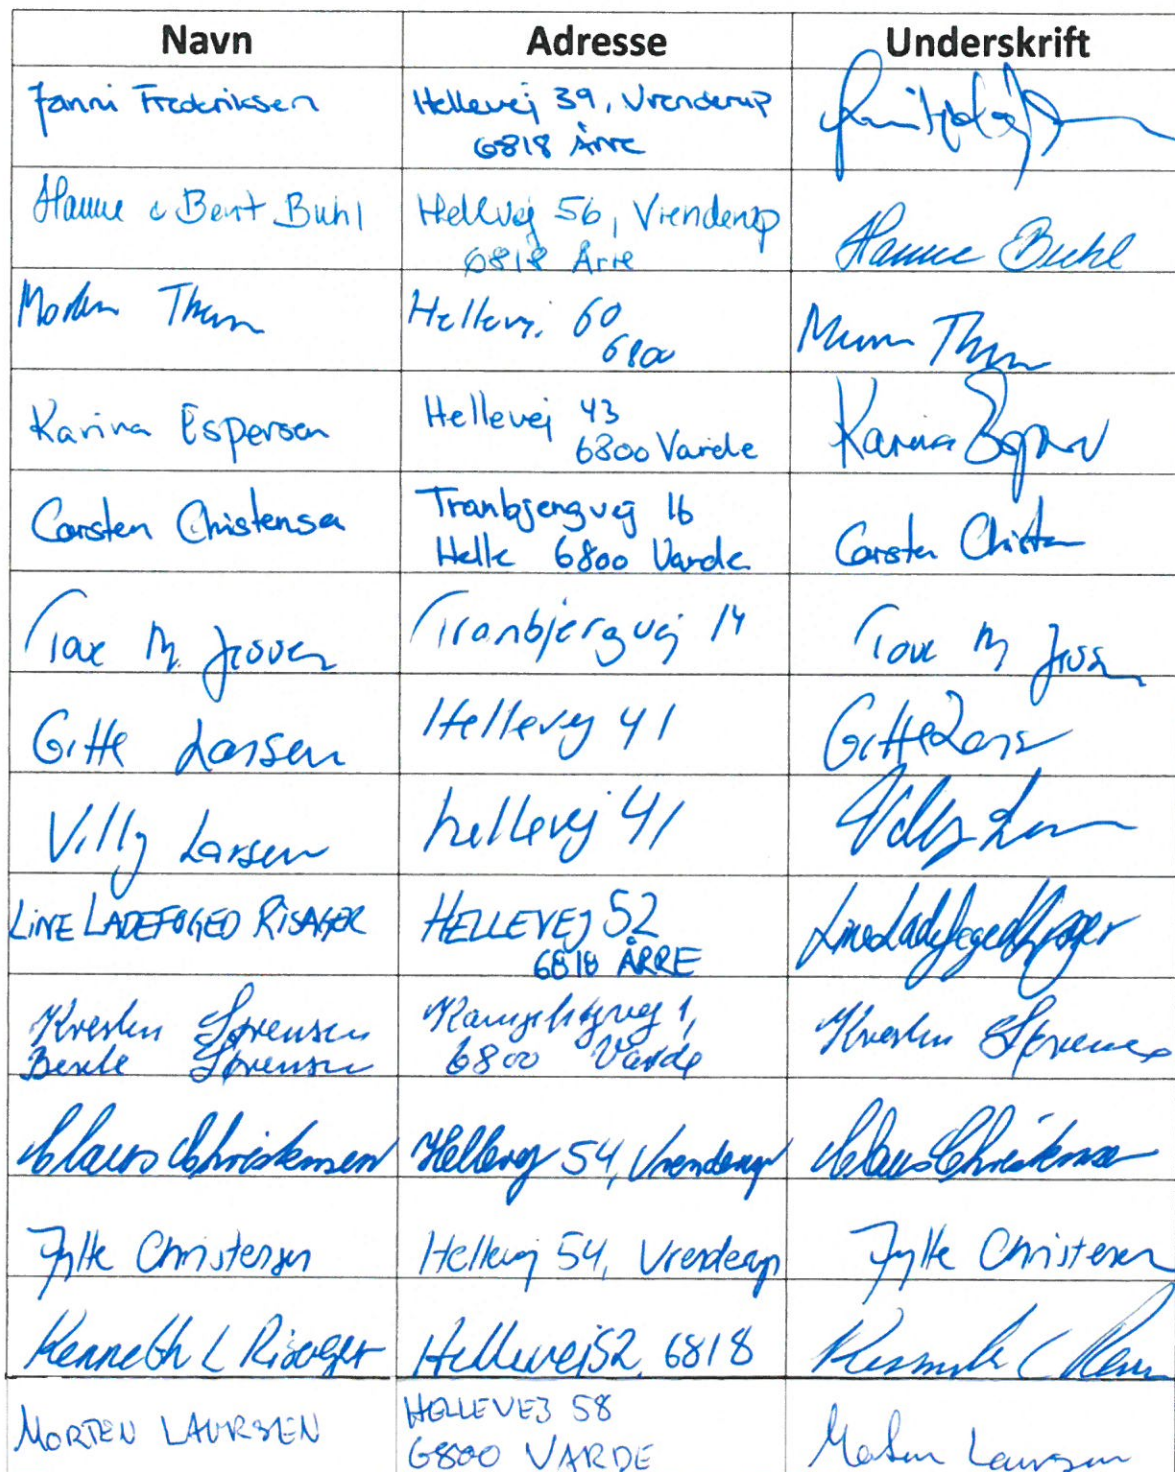 Navn Adresse Underskrift
Janni Frederiksen Hellevej 39, Vrenderup
6818 Årre
Hanne & Bent Buhl Hellvej 56, Vrenderup
6818 Årre Hanne Buhl
Morten Thun Hellevej 60
6800 Thun
Karina Espersen Hellevej 43
6800 Varde Karina
Carsten Christensen Tranbjergvej 16
Helle 6800 Varde Carsten Christen
Tove M. Tranbjergvej 14 Tove M
Gitte Larsen Hellevej 41 Gitte Lars
Villy Larsen hellevej 41 Villy
LINE LADEFOGED RISAGER HELLEVEJ 52
6818 ÅRRE Line Ladefoged Risager
Sørensen 1,
Sørensen 6800 Varde
Claus Christensen Hellevej 54, Vrenderup Claus Christensen
Jytte Christensen Hellevej 54, Vrenderup Jytte Christensen
Kenneth L Risager Hellevej 52, 6818
MORTEN LAURSEN HELLEVEJ 58
6800 VARDE Morten Laursen